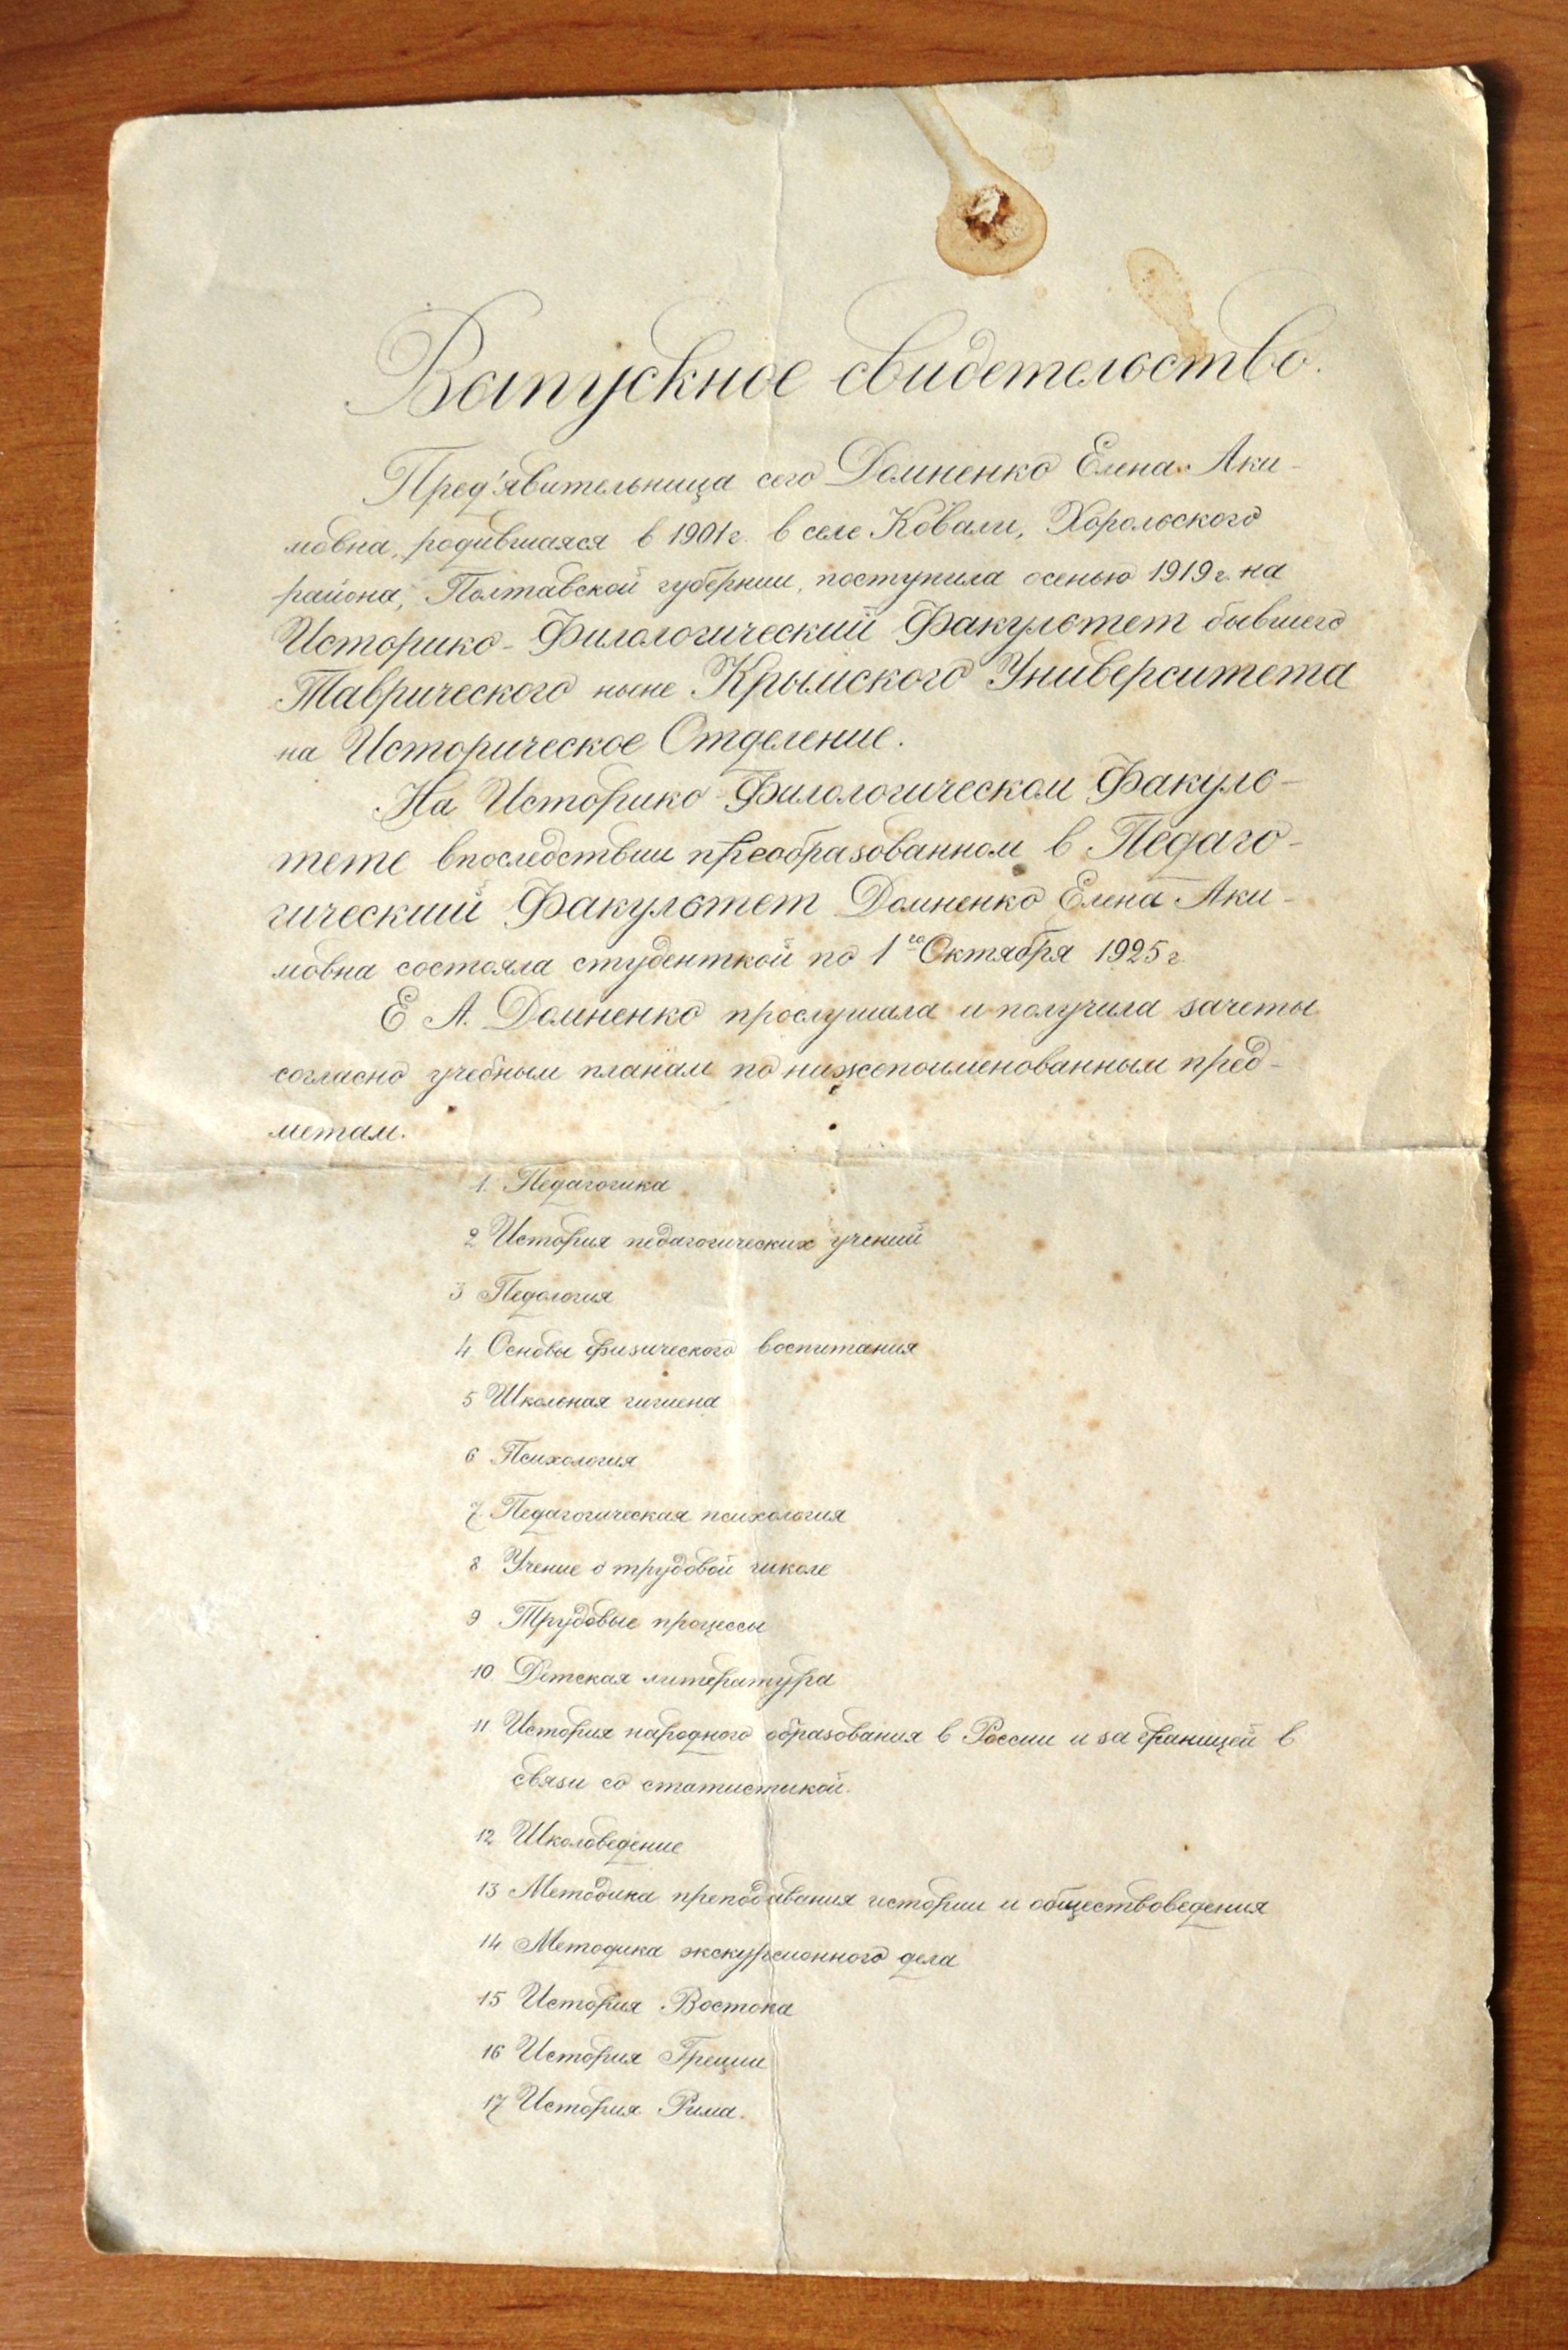 Выпускное свидетельство.
Пред'явительница сего Домненко Елена Аки-
мовна, родившаяся в 1901 г. в селе Ковали, Хорольского
района, Полтавской губернии, поступила осенью 1919 г. на
Историко-Филологический Факультет бывшего
Таврического ныне Крымского Университета
на Историческое Отделение.
На Историко-Филологическом Факуль-
тете впоследствии преобразованном в Педаго-
гический Факультет Домненко Елена Аки-
мовна состояла студенткой по 1го Октября 1925 г.
Е. А. Домненко прослушала и получила зачеты
согласно учебным планам по нижепоименованным пред-
метам.
1. Педагогика
2 История педагогических учений
3 Педология
4 Основы физического воспитания
5 Школьная гигиена
6 Психология
7. Педагогическая психология
8 Учение о трудовой школе
9 Трудовые процессы
10. Детская литература
11. История народного образования в России и за границей в
связи со статистикой.
12 Школоведение
13 Методика преподавания истории и обществоведения
14 Методика экскурсионного дела
15 История Востока
16 История Греции
17 История Рима.